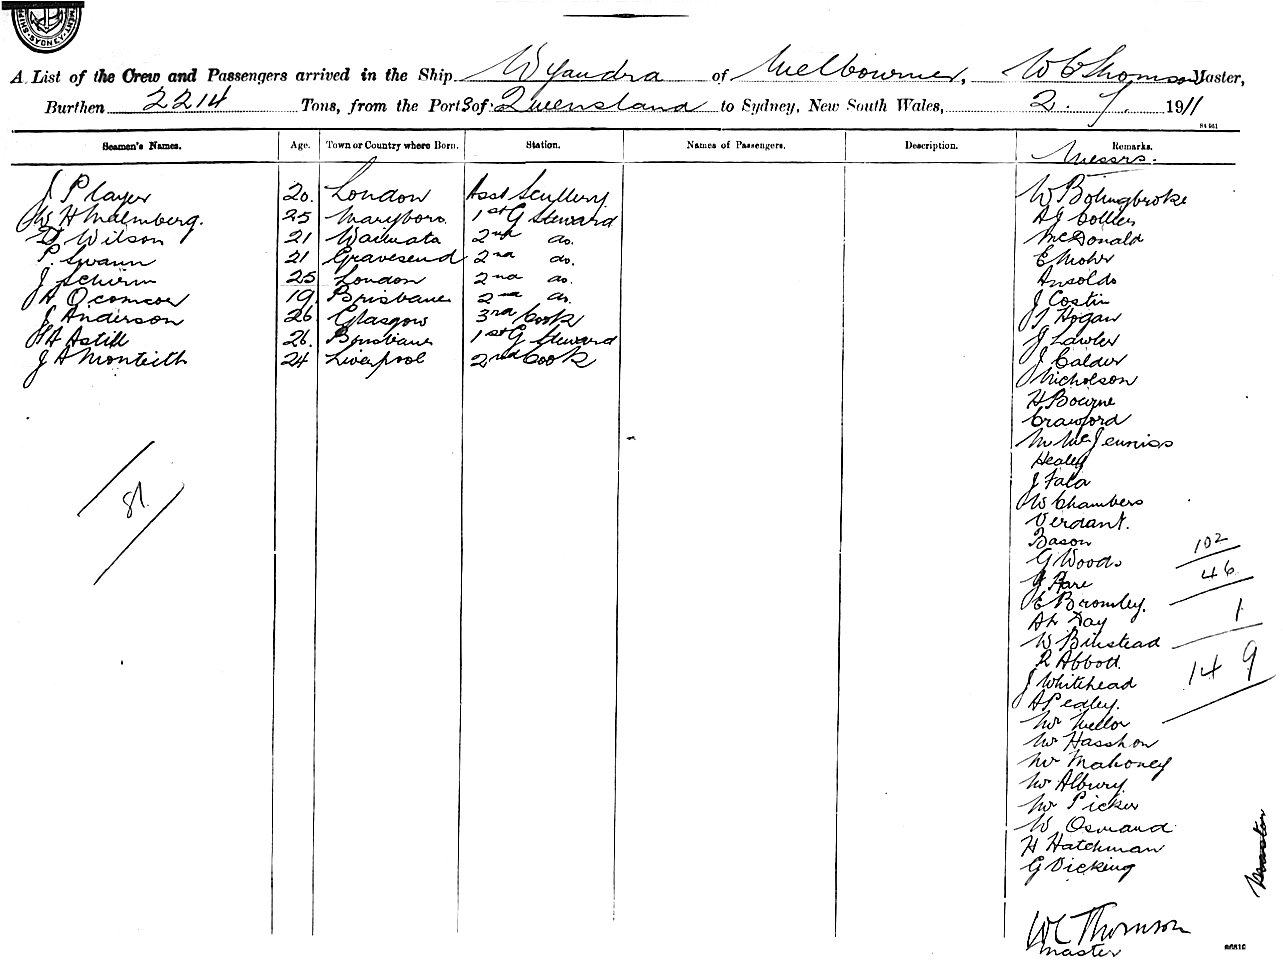 SYDNEY
A List of the Crew and Passengers arrived in the Ship Wyandra of Melbourne, W C Thomson Master,
Burthen 2214 Tons, from the Port S of Queensland to Sydney, New South Wales, 2. 7. 1911
Seamen's Names. Age. Town or Country where Born. Station. Names of Passengers. Description. Remarks.
Messrs.
J Player 20. London Asst Scullery
W H Malmberg. 25 Maryboro. 1st G Steward
D Wilson 21 2nd do.
P. Swann 21 Gravesend 2nd do.
J 25 London 2nd do.
A 19 Brisbane 2nd do.
J Anderson 26 Glasgow 3rd Cook
H A Astill 26. Brisbane 1st G Steward
J A Monteith 24 Liverpool 2nd Cook
W Bolingbroke
A J Collier
McDonald
E Mohr
Ansoldo
J Costin
T Hogan
J Lawler
J Calder
Nicholson
H Bourne
Crawford
Healey
J Fala
W Chambers
Verdant.
Bason
G Woods
J Hare
E Bromley.
Day
W Binstead
R Abbott.
J Whitehead
A Pedley.
Mr Mellor
Mr Hasshon
Mr Mahoney
Mr Albury
Mr Picker
W Osmand
H Hatchman
G Dicking
81
102
46
1
149
W C Thomson
Master